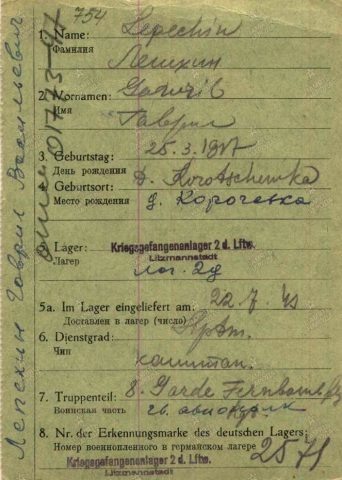 754
1. Name: Lepechin
Фамилия Лепехин
2. Vornamen: Gawril
Имя Гаврил
3. Geburtstag: 25.3.1917
День рождения
4. Geburtsort: D. Korotschewka
Место рождения д. Корочевка
5. Lager: Kriegsgefangenenlager 2 d. Lftw.
Litzmannstadt
Лагерь лаг. 2д
5a. Im Lager eingeliefert am: 22.7.43
Доставлен в лагерь (число)
6. Dienstgrad: Hptm.
Чин капитан.
7. Truppenteil: 8. Garde Fernbomb.
Воинская часть гв. авиаполк
8. Nr. der Erkennungsmarke des deutschen Lagers:
Номер военнопленного в германском лагере 2571
Kriegsgefangenenlager 2 d. Lftw.
Лепехин Гаврил Васильевич